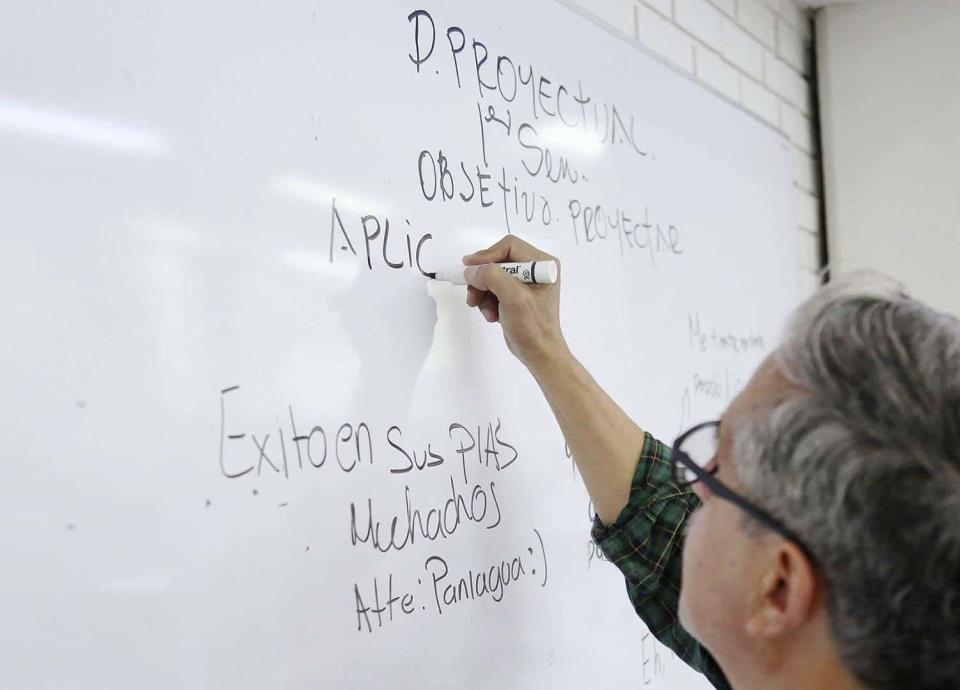 D. PROYECTUAL.
1er Sem.
OBSEtivo. PROYECtAR
APLIC
Exito en Sus PIAS
Muchachos
Atte: Paniagua :)
Eh,